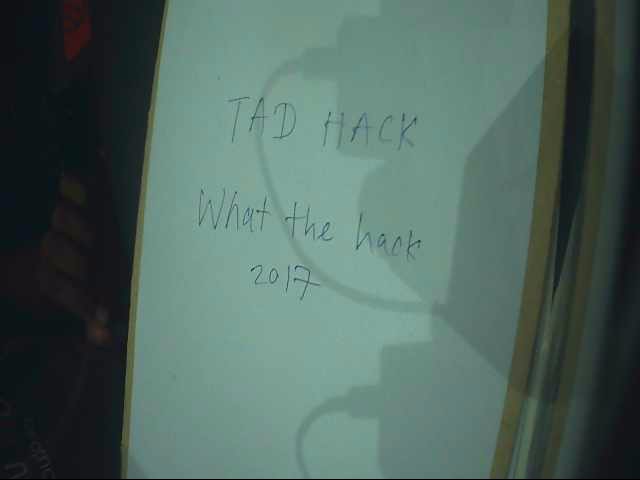 TAD HACK
What the hack
2017